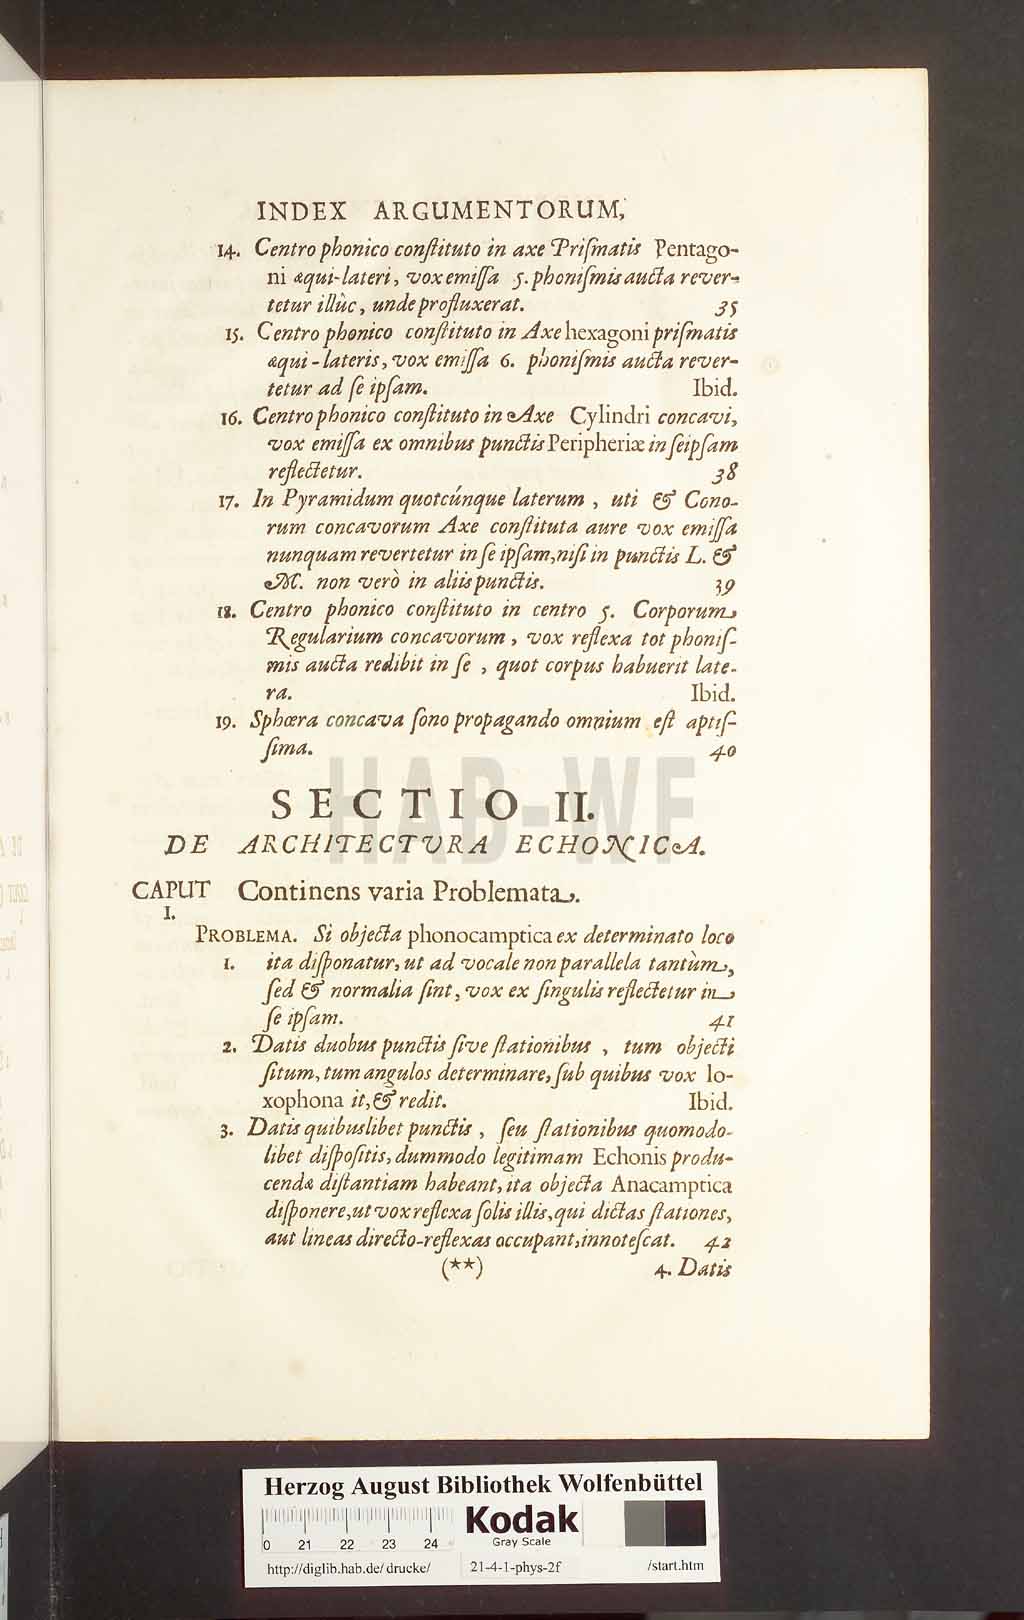 INDEX ARGUMENTORUM,
14. Centro phonico conſtituto in axe Priſmatis Pentago-
ni æqui-lateri, vox emiſſa 5. phoniſmis aucta rever-
tetur illùc, unde profluxerat. 35
15. Centro phonico conſtituto in Axe hexagoni priſmatis
æqui-lateris, vox emiſſa 6. phoniſmis aucta rever-
tetur ad ſe ipſam. Ibid.
16. Centro phonico conſtituto in Axe Cylindri concavi,
vox emiſſa ex omnibus punctis Peripheriæ in ſeipſam
reflectetur. 38
17. In Pyramidum quotcúnque laterum, uti & Cono-
rum concavorum Axe conſtituta aure vox emiſſa
nunquam revertetur in ſe ipſam, niſi in punctis L. &
M. non verò in aliis punctis. 39
18. Centro phonico conſtituto in centro 5. Corporum
Regularium concavorum, vox reflexa tot phoniſ-
mis aucta redibit in ſe, quot corpus habuerit late-
ra. Ibid.
19. Sphœra concava ſono propagando omnium eſt aptiſ-
ſima. 40
HAB-WF
SECTIO II.
DE ARCHITECTVRA ECHONICA.
CAPUT Continens varia Problemata.
I.
PROBLEMA. Si objecta phonocamptica ex determinato loco
1. ita diſponatur, ut ad vocale non parallela tantùm,
ſed & normalia ſint, vox ex ſingulis reflectetur in
ſe ipſam. 41
2. Datis duobus punctis ſive ſtationibus, tum objecti
ſitum, tum angulos determinare, ſub quibus vox lo-
xophona it, & redit. Ibid.
3. Datis quibuslibet punctis, ſeu ſtationibus quomodo-
libet diſpoſitis, dummodo legitimam Echonis produ-
cendæ diſtantiam habeant, ita objecta Anacamptica
diſponere, ut vox reflexa ſolis illis, qui dictas ſtationes,
aut lineas directo-reflexas occupant, innoteſcat. 42
(**) 4. Datis
Herzog August Bibliothek Wolfenbüttel
0 21 22 23 24
Kodak
Gray Scale
http://diglib.hab.de/drucke/ 21-4-1-phys-2f /start.htm